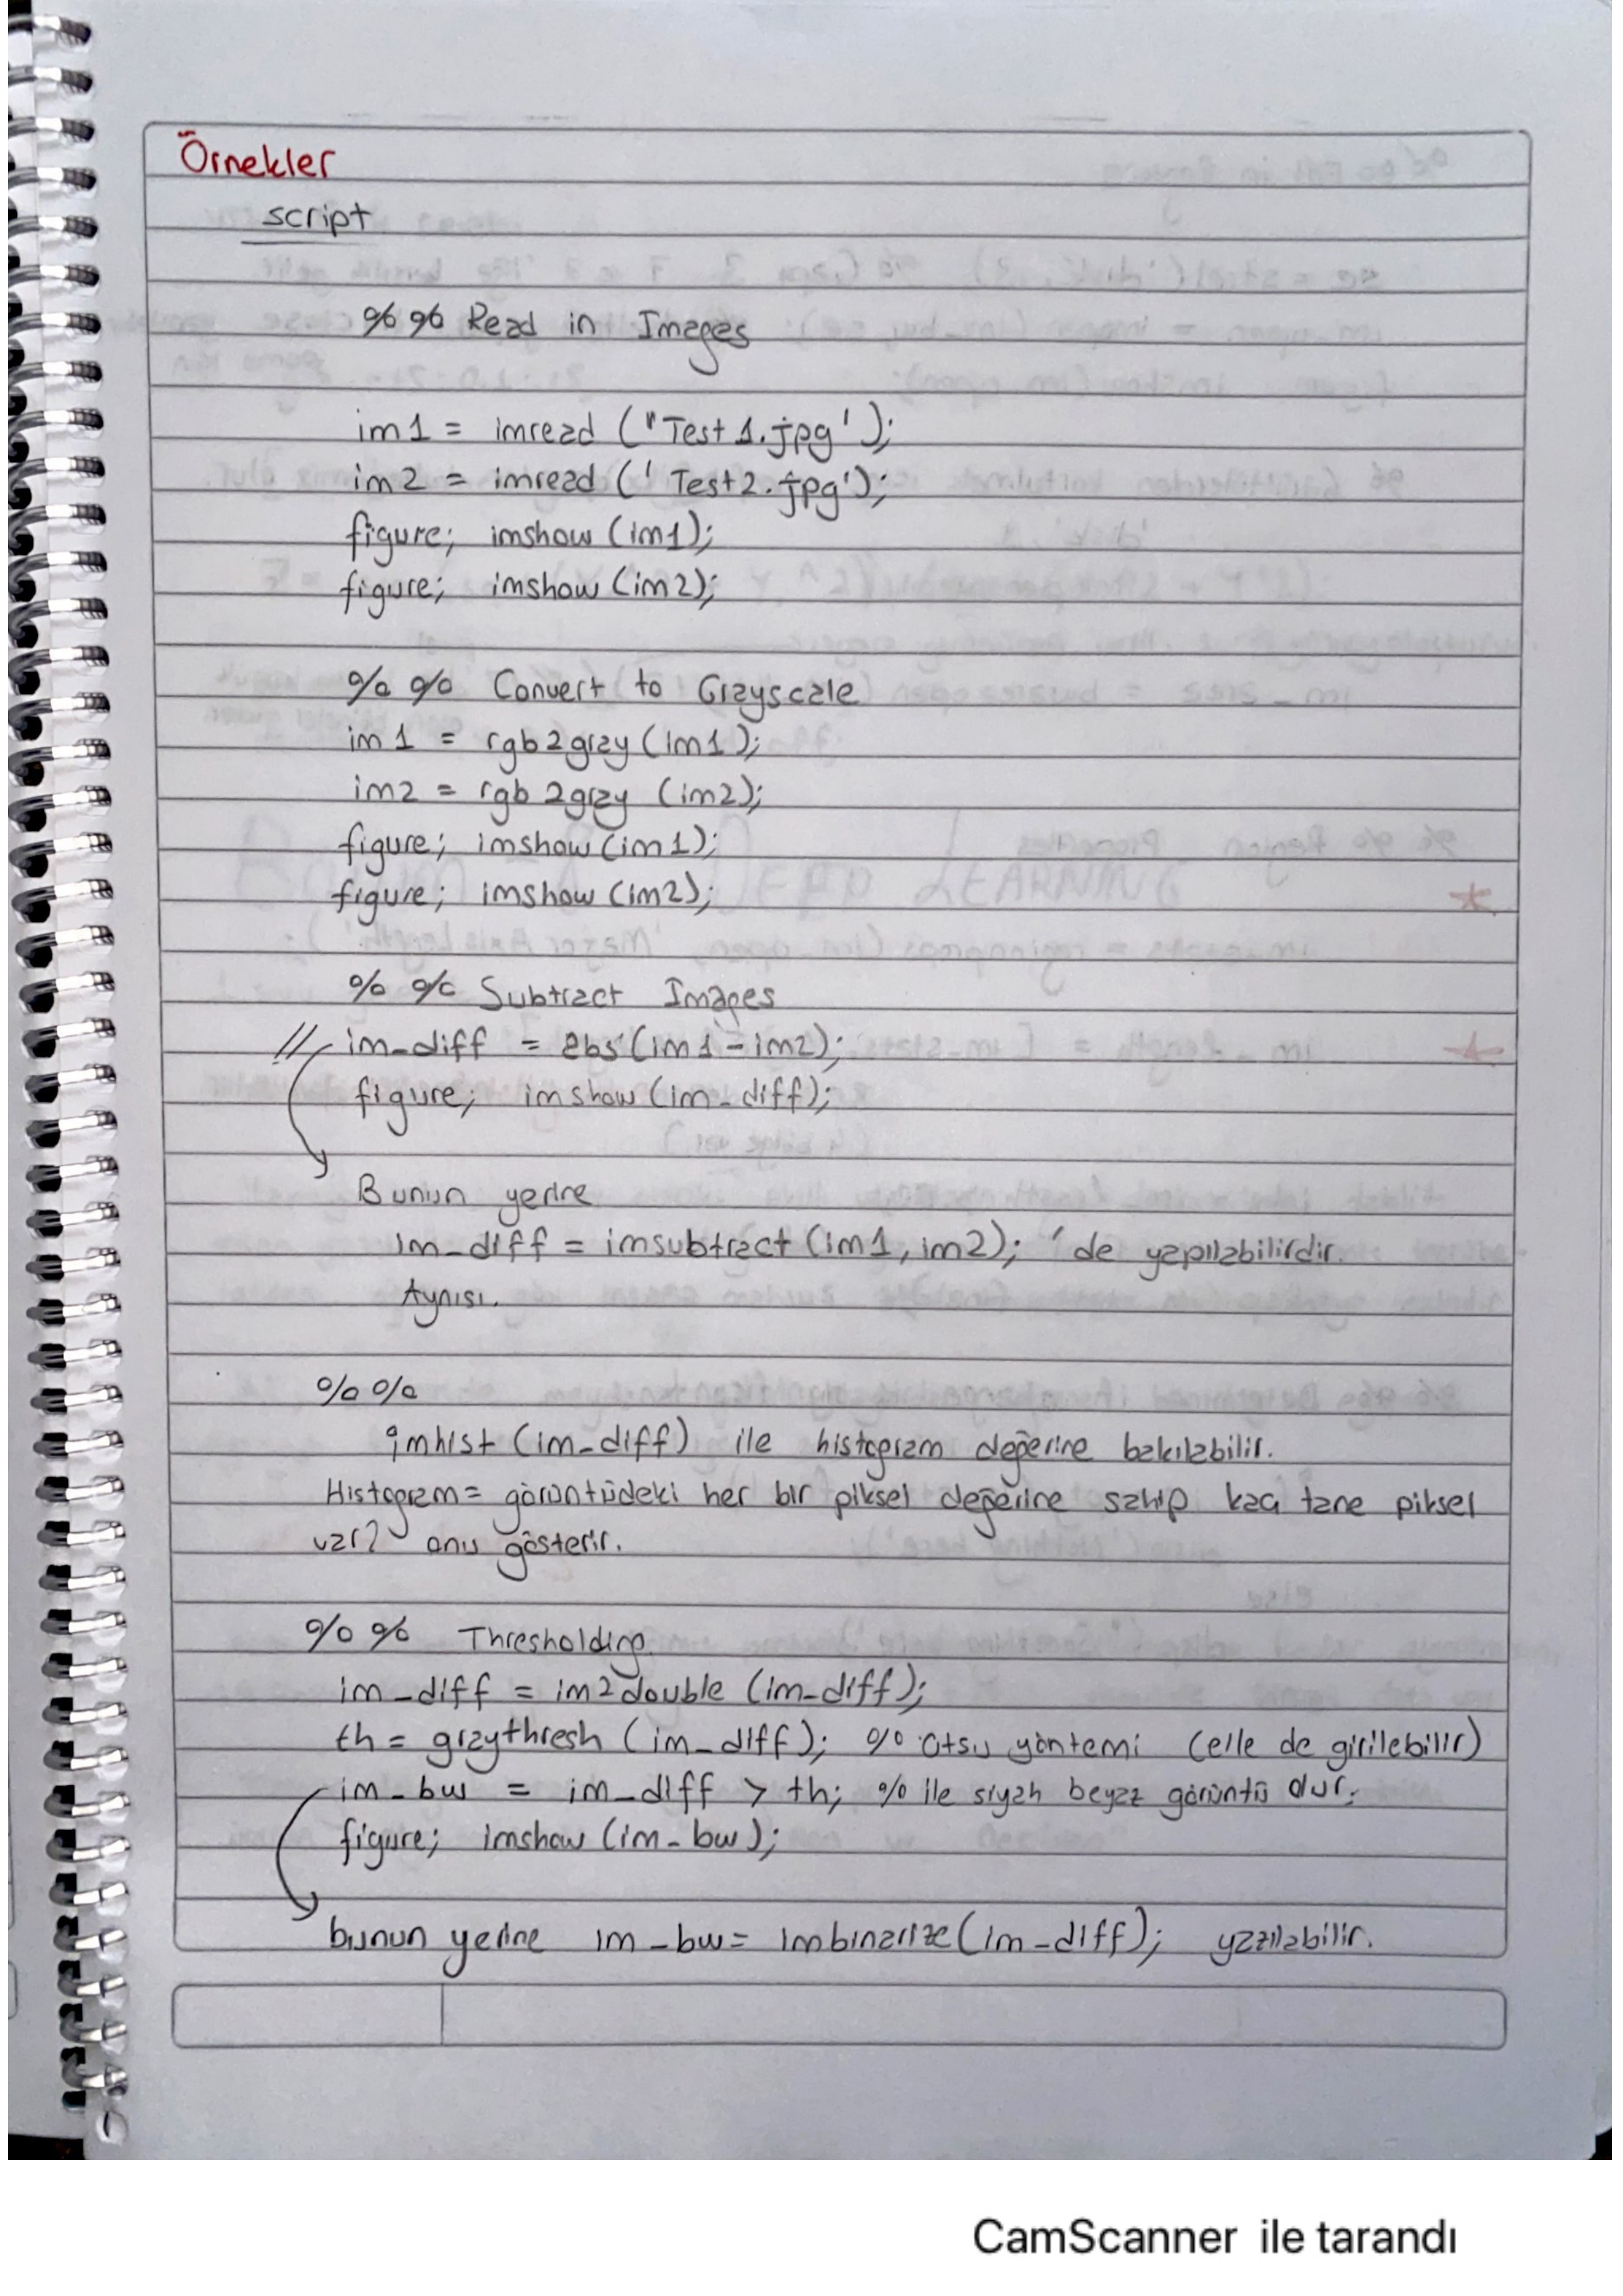 Örnekler
script
%% Read in Images
im1 = imread ("Test1.jpg');
im2 = imread ('Test2.jpg');
figure; imshow (im1);
figure; imshow (im2);
%% Convert to Grayscale
im1 = rgb2gray (im1);
im2 = rgb2gray (im2);
figure; imshow (im1);
figure; imshow (im2);
%% Subtract Images
// im_diff = abs (im1 - im2);
figure; imshow (im_diff);
Bunun yerine
im_diff = imsubtract (im1, im2); 'de yapılabilirdir.
Aynısı.
%%
imhist (im_diff) ile histogram değerine bakılabilir.
Histogram = görüntüdeki her bir piksel değerine sahip kaç tane piksel
var? onu gösterir.
%% Thresholding
im_diff = im2double (im_diff);
th = graythresh (im_diff); % otsu yöntemi (elle de girilebilir)
im_bw = im_diff > th; % ile siyah beyaz görüntü olur.
figure; imshow (im_bw);
bunun yerine im_bw = imbinarize (im_diff); yazılabilir.
CamScanner ile tarandı